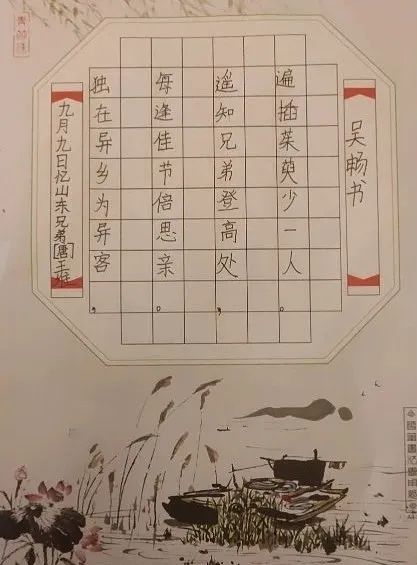 九月九日忆山东兄弟[唐]王维
独在异乡为异客，
每逢佳节倍思亲。
遥知兄弟登高处，
遍插茱萸少一人。
吴畅书